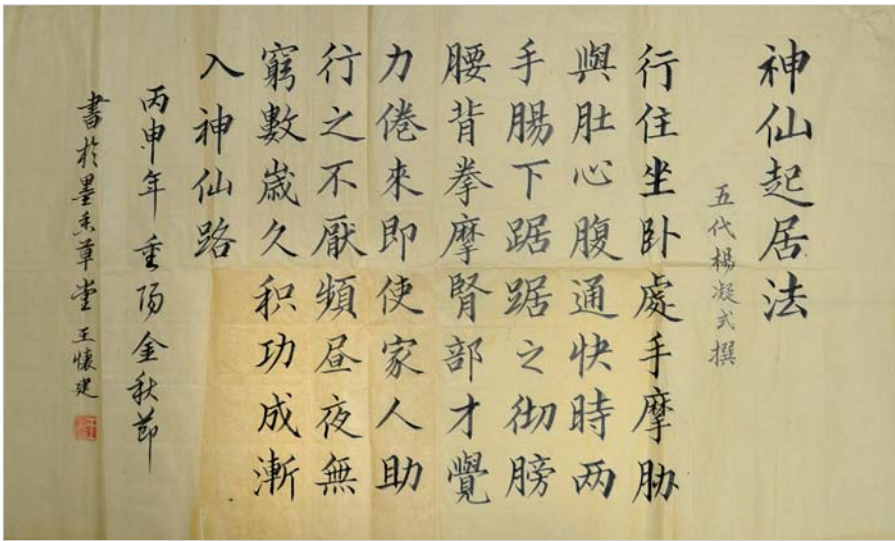 神仙起居法
五代楊凝式撰
行住坐卧處手摩胁
與肚心腹通快時两
手腸下踞踞之彻膀
腰背拳摩腎部才覺
力倦來即使家人助
行之不厭頻昼夜無
窮數歲久积功成漸
入神仙路
丙申年重陽金秋节
書於墨香草堂王懷建